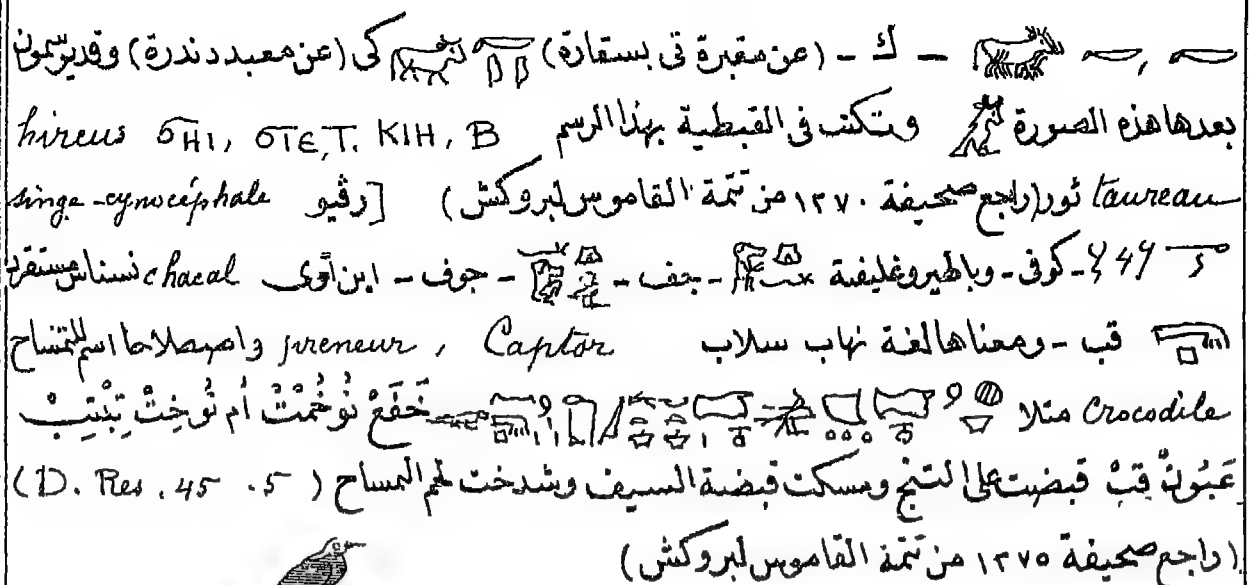 ـ ك ـ (عن مقبرة تى بسقارة) كى (عن معبد دندرة) وقد يرسمون
بعدها هذه الصورة وتكتب فى القبطية بهذا الرسم hircus ϭHI, ϭIE, T. KIH, B
taureau ثور (راجع صحيفة ١٣٧٠ من تتمة القاموس لبروكش) [رڤيو singe-cynocéphale
ـ كوفى ـ وباهيروغليفية ـ جف ـ ـ جوف ـ ابن آوى chacal نسناس مستقرد
قب ـ ومعناها لغة نهاب سلاب preneur, Captor واصطلاحا اسم للتمساح
Crocodile مثلا خَفَعْ نُوخُمْتْ أم نُوخِتْ تِبْتِبْ
عَبُونْ قِبْ قبضت على التنج ومسكت قبضة السيف وشدخت لحم التمساح (D. Res. 45 . 5)
(راجع صحيفة ١٢٧٥ من تتمة القاموس لبروكش)